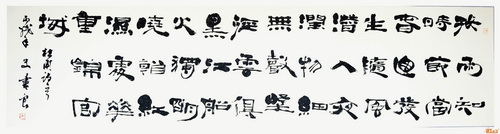 好雨知
時節當
春迺發
生隨風
潛入夜
潤物細
無聲壄
徑雲俱
黑江船
火獨明
曉看紅
濕處華
重錦官
城
杜甫詩
戌年